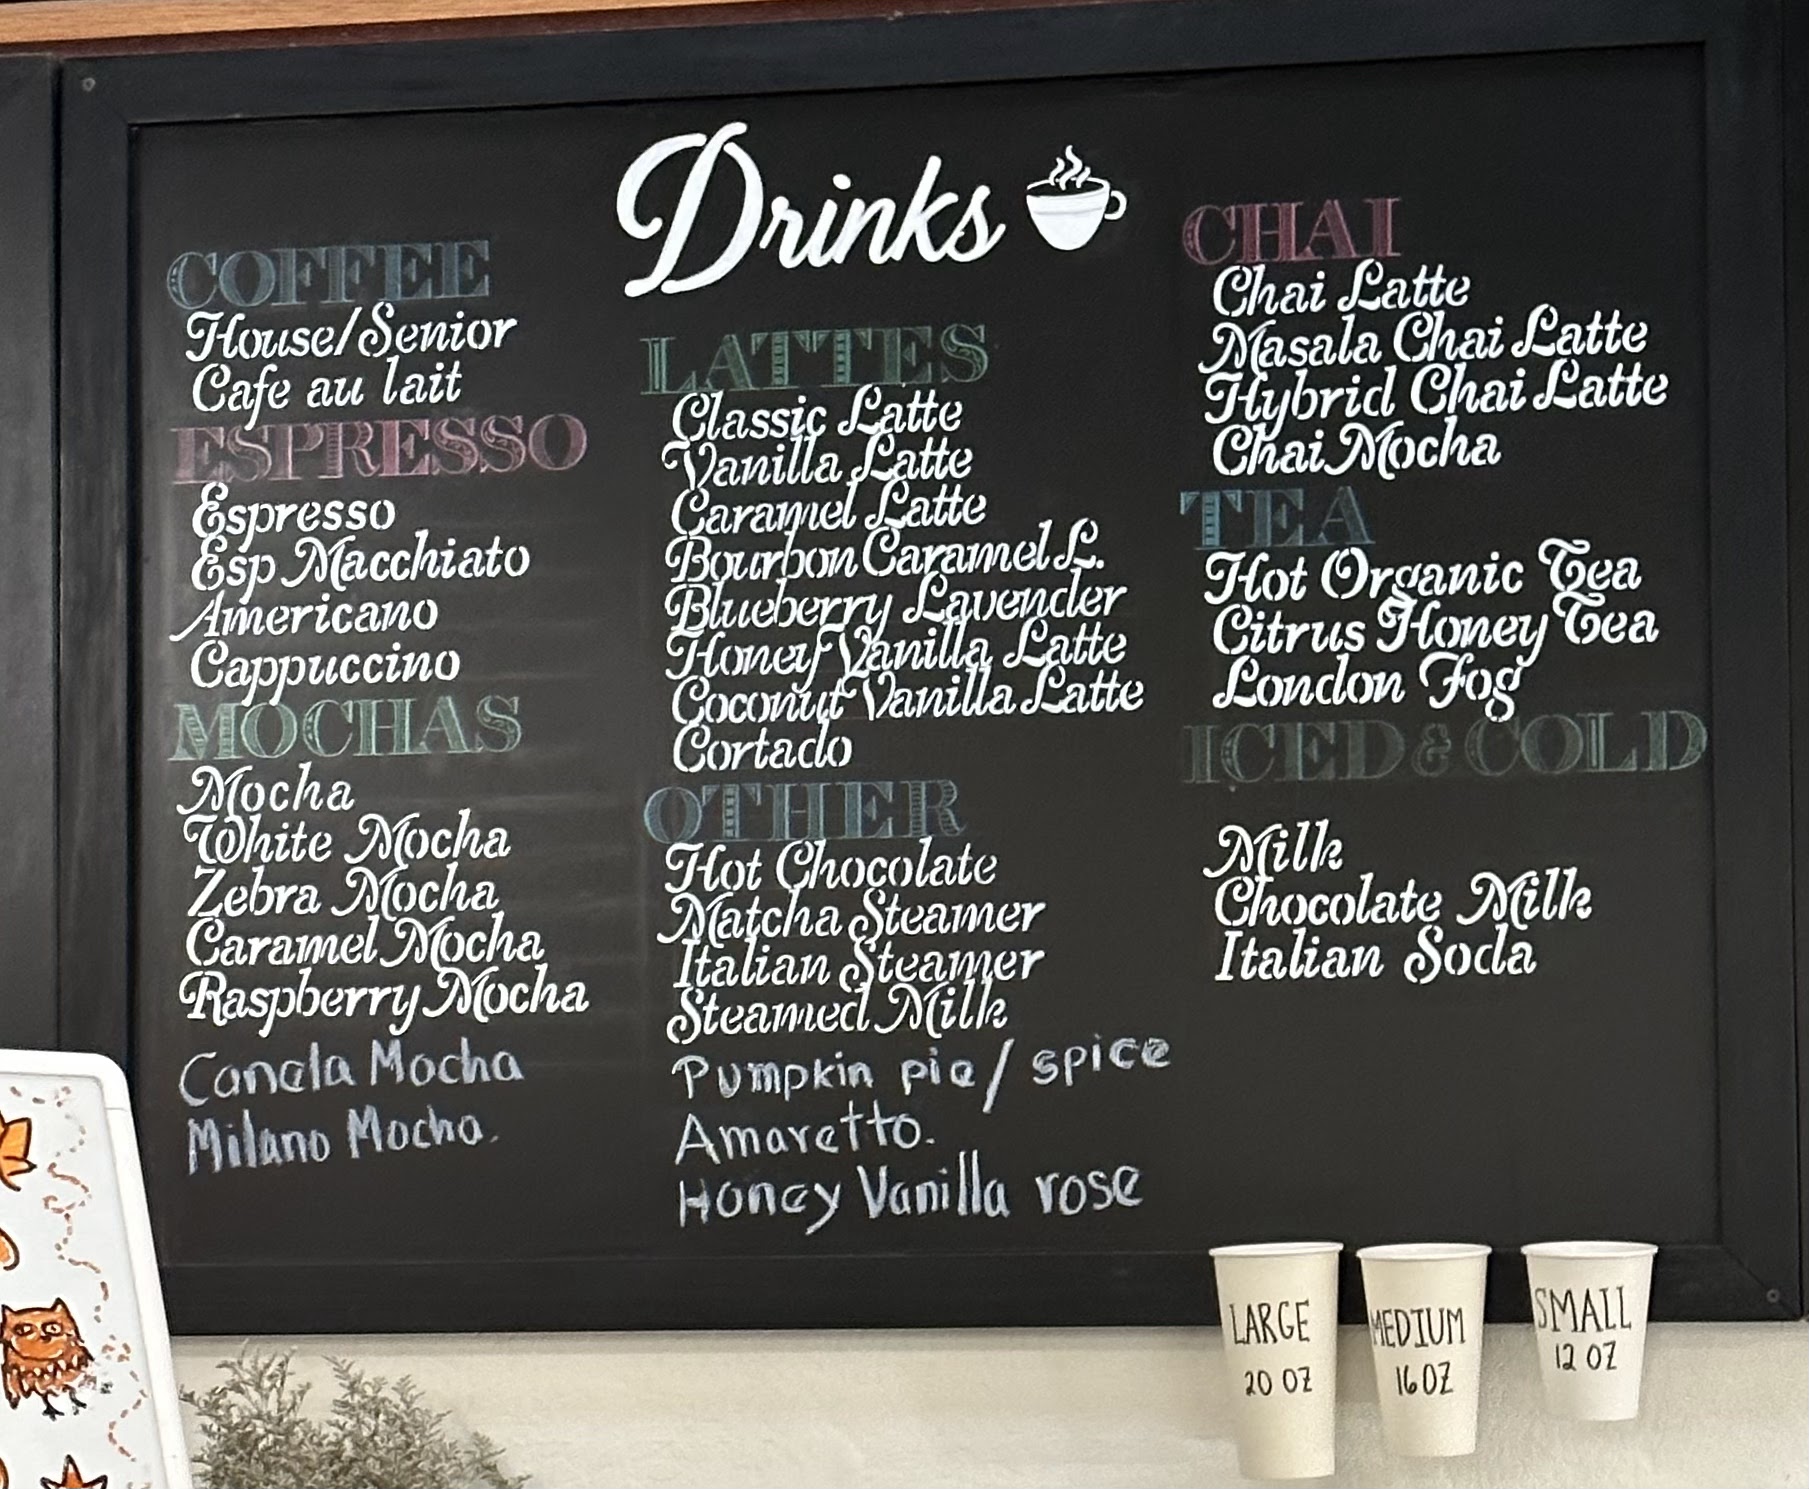 Drinks
COFFEE
House/Senior
Cafe au lait
ESPRESSO
Espresso
Esp Macchiato
Americano
Cappuccino
MOCHAS
Mocha
White Mocha
Zebra Mocha
Caramel Mocha
Raspberry Mocha
Canela Mocha
Milano Mocha.
LATTES
Classic Latte
Vanilla Latte
Caramel Latte
Bourbon Caramel L.
Blueberry Lavender
Honey Vanilla Latte
Coconut Vanilla Latte
Cortado
OTHER
Hot Chocolate
Matcha Steamer
Italian Steamer
Steamed Milk
Pumpkin pie/spice
Amaretto.
Honey Vanilla rose
CHAI
Chai Latte
Masala Chai Latte
Hybrid Chai Latte
Chai Mocha
TEA
Hot Organic Tea
Citrus Honey Tea
London Fog
ICED & COLD
Milk
Chocolate Milk
Italian Soda
LARGE
20 OZ
MEDIUM
16 OZ
SMALL
12 OZ